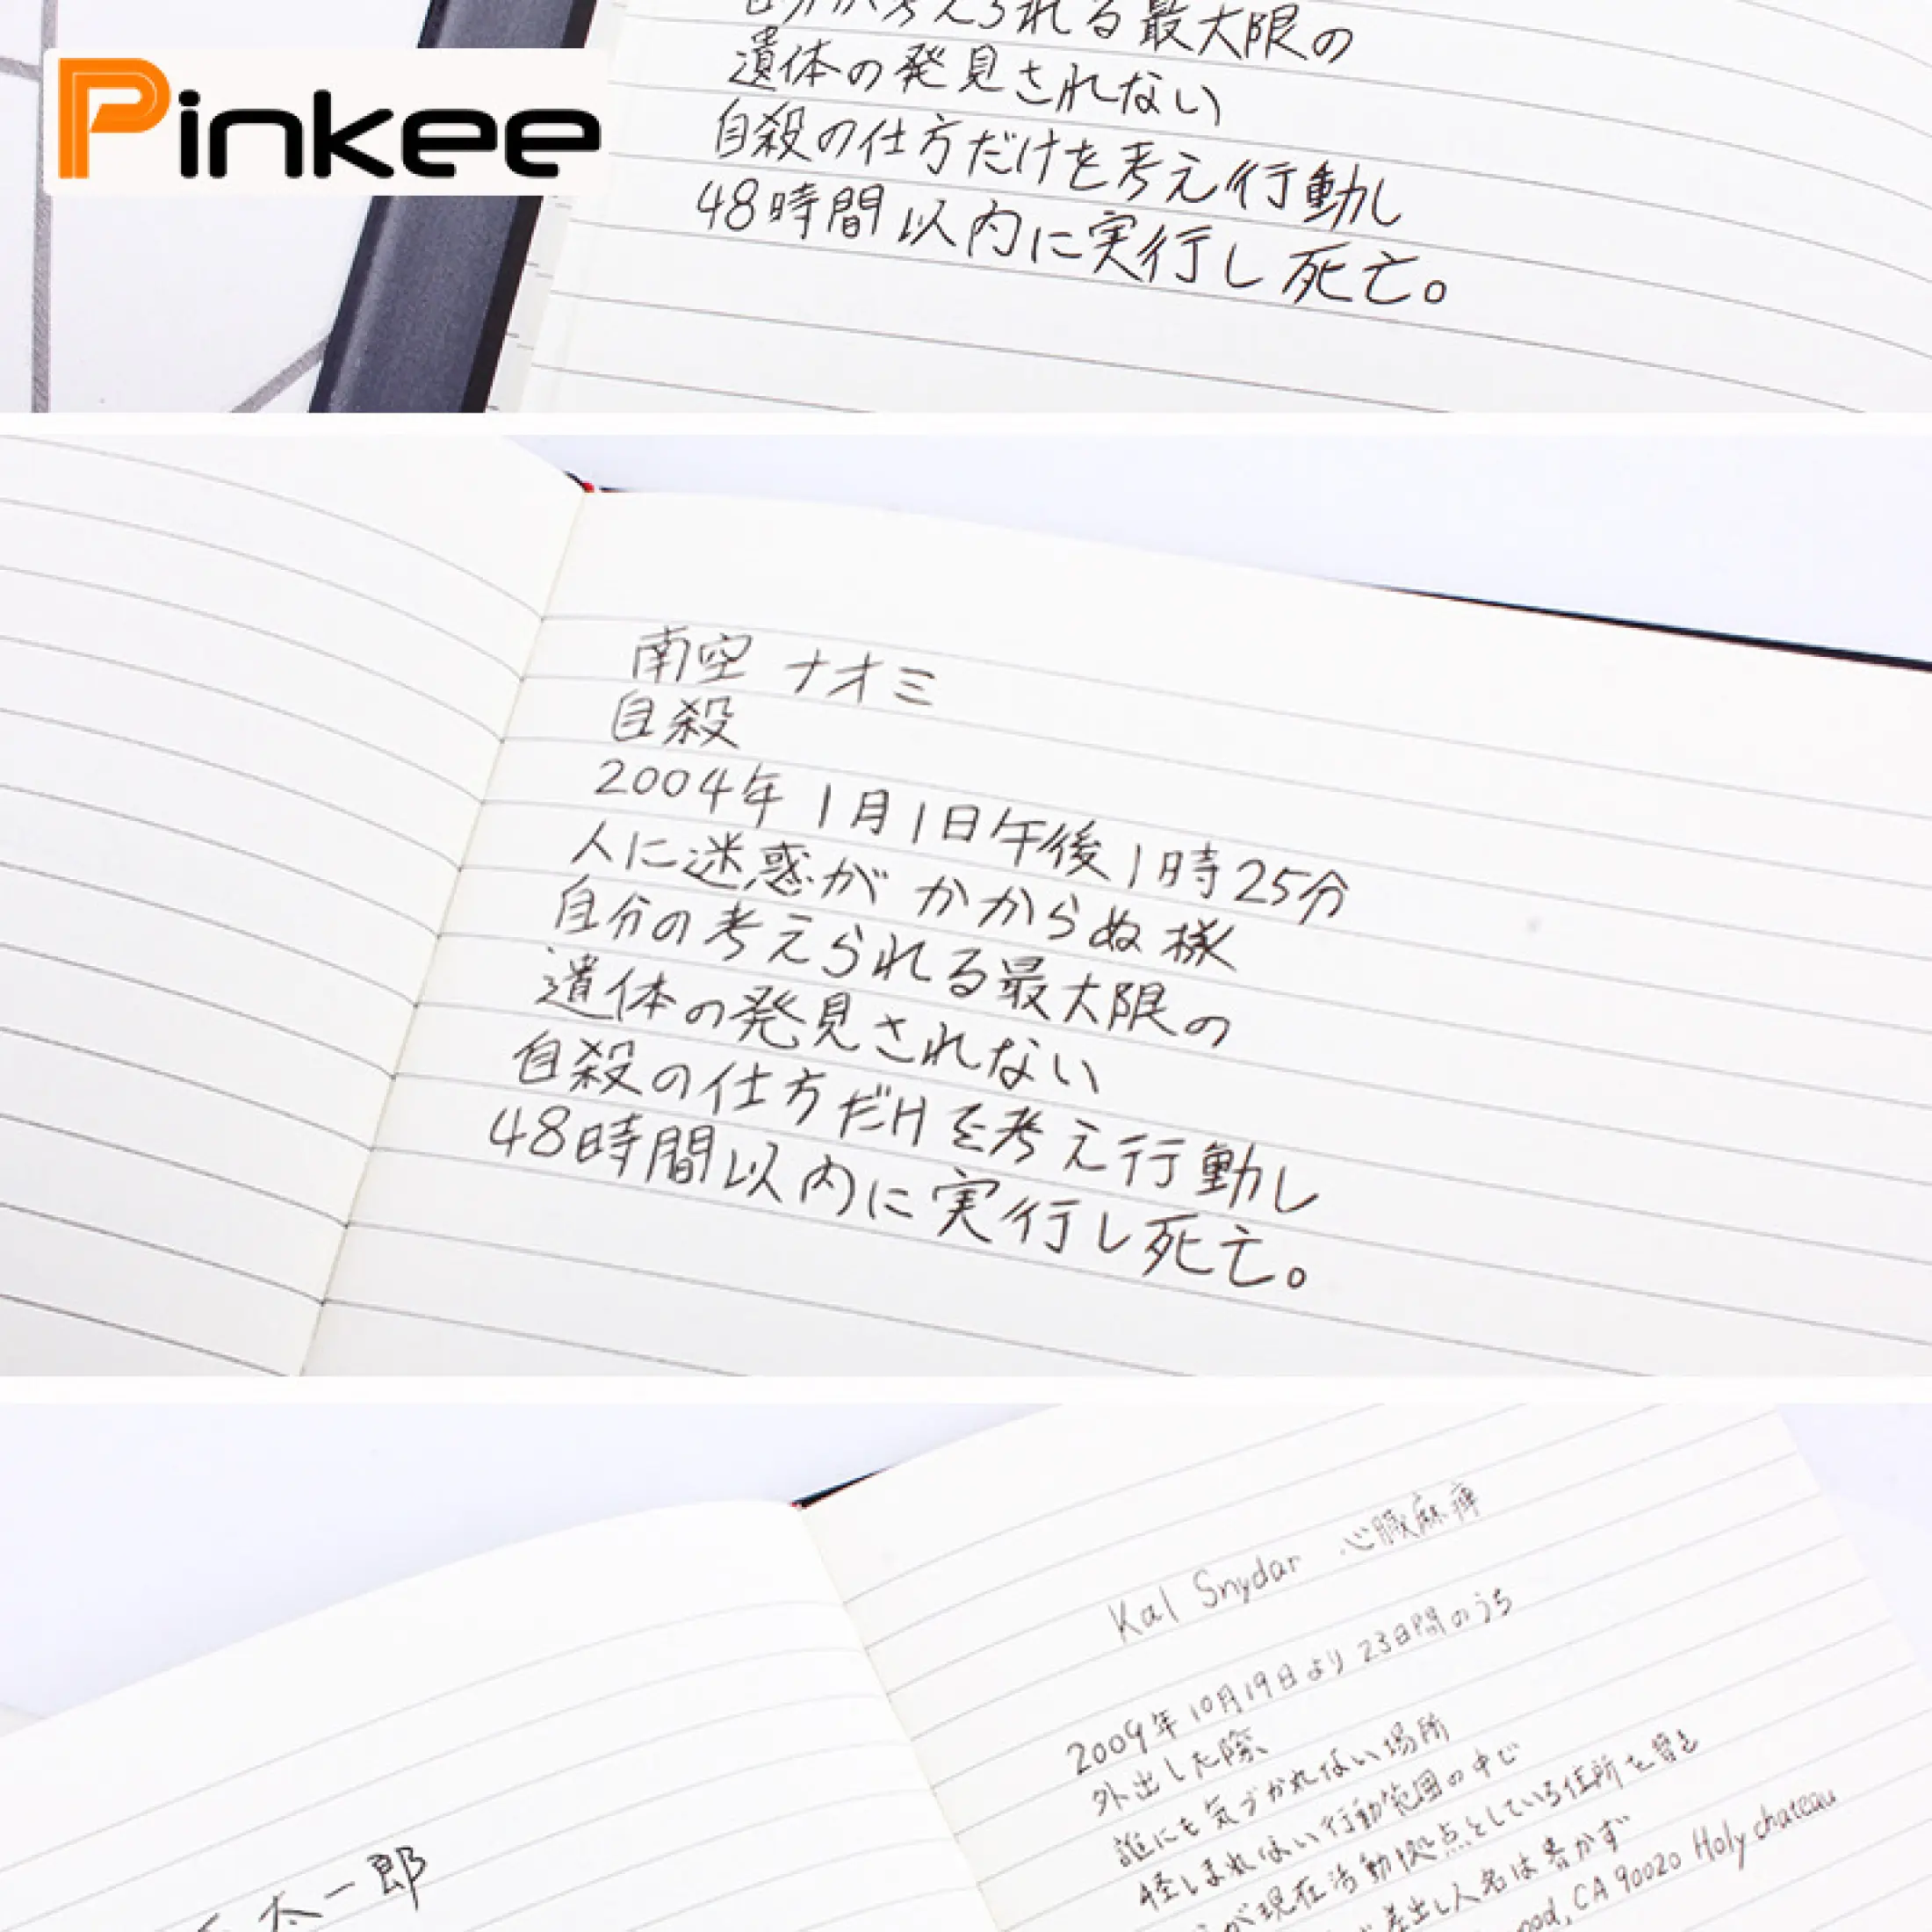 Pinkee
考えられる最大限の
遺体の発見されない
自殺の仕方だけを考え行動し
48時間以内に実行し死亡。
南空 ナオミ
自殺
2004年1月1日午後1時25分
人に迷惑がかからぬ様
自分の考えられる最大限の
遺体の発見されない
自殺の仕方だけを考え行動し
48時間以内に実行し死亡。
Kal Snydar 心臓麻痺
2009年10月19日より23日間のうち
外出した際、
誰にも気づかれない場所
怪しまれない行動範囲の中で
が現在活動拠点としている住所を
差出し人名は書かず
CA 90020 Holy chateau
太一郎